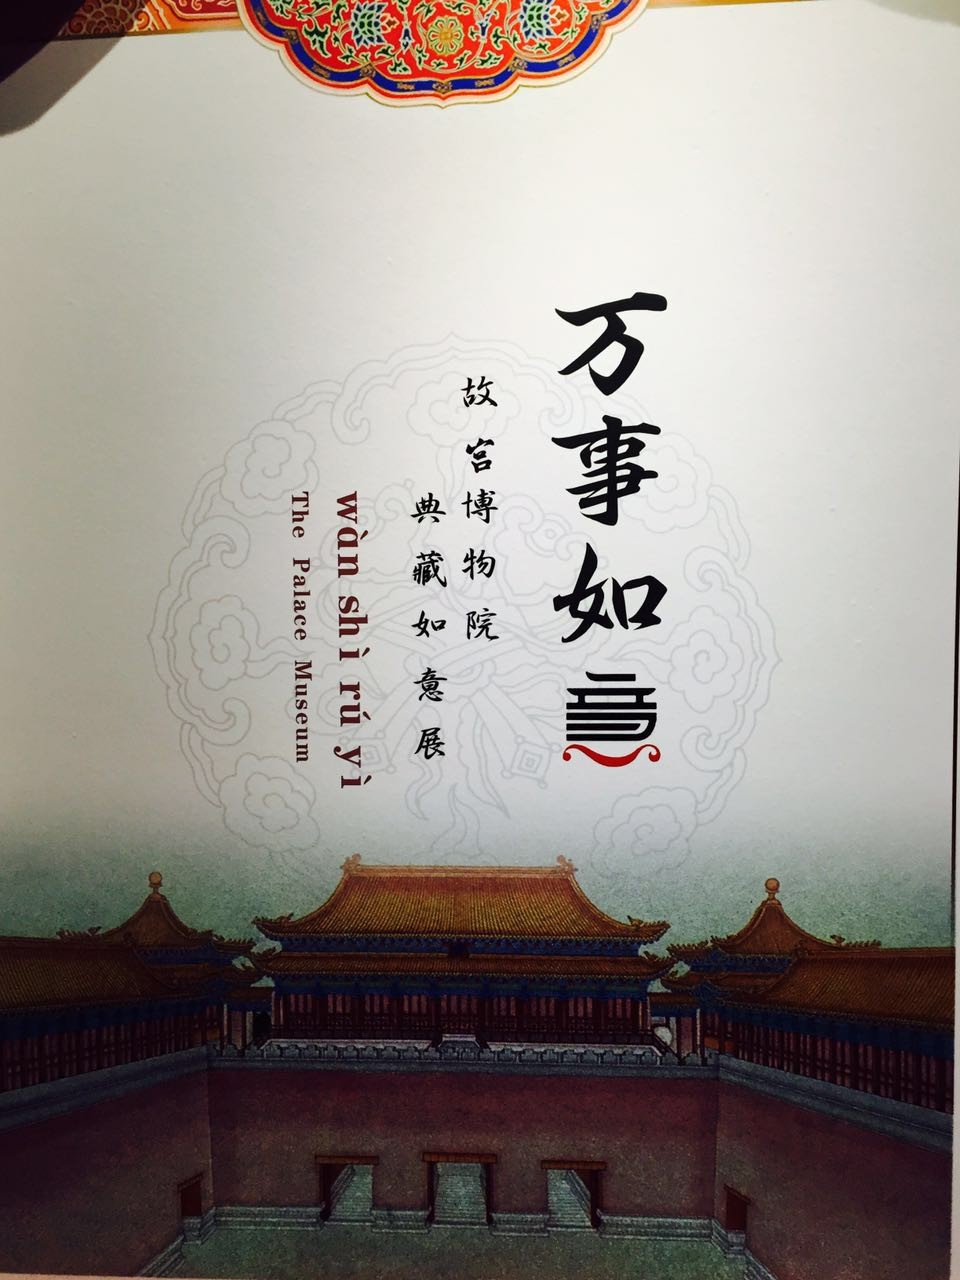 万事如意
故宫博物院
典藏如意展
wàn shì rú yì
The Palace Museum